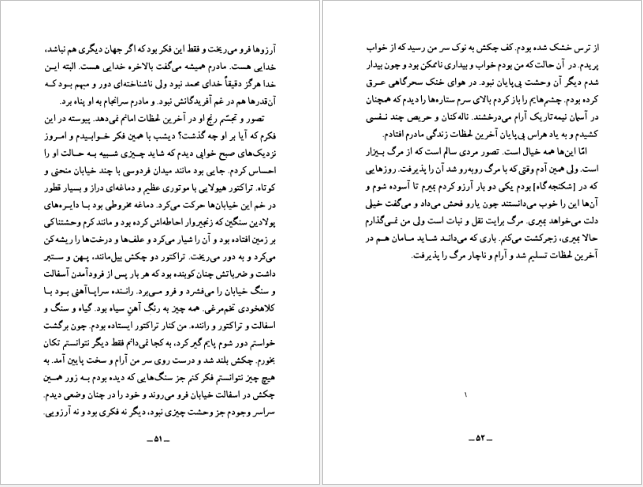 آرزوها فرو می‌ریخت و فقط این فکر بود که اگر جهان دیگری هم نباشد،
خدایی هست. مادرم همیشه می‌گفت بالاخره خدایی هست. البته این
خدا هرگز دقیقاً خدای محمد نبود ولی ناشناخته‌ای دور و مبهم بود که
آن‌قدرها هم در غم آفریدگانش نبود. و مادرم سرانجام به او پناه برد.
تصور و تجسّم رنج او در آخرین لحظات امانم نمی‌دهد. پیوسته در این
فکرم که آیا بر او چه گذشت؟ دیشب با همین فکر خوابیدم و امروز
نزدیک‌های صبح خوابی دیدم که شاید چیزی شبیه به حالت او را
احساس کردم. جایی بود مانند میدان فردوسی با چند خیابان منحنی و
کوتاه. تراکتور هیولایی با موتوری عظیم و دماغه‌ای دراز و بسیار قطور
در خم این خیابان‌ها حرکت می‌کرد. دماغه مخروطی بود با دایره‌های
پولادین سنگین که زنجیروار احاطه‌اش کرده بود و مانند کرم وحشتناکی
بر زمین افتاده بود و آن را شیار می‌کرد و علف‌ها و درخت‌ها را ریشه‌کن
می‌کرد و به دور می‌ریخت. تراکتور دو چکش بیل‌مانند، پهن و ستبر
داشت و ضرباتش چنان کوبنده بود که هر بار پس از فرودآمدن آسفالت
و سنگ خیابان را می‌فشرد و فرو می‌برد. راننده سراپا آهنی بود با
کلاهخودی تخم‌مرغی. همه چیز به رنگ آهن سیاه بود. گیاه و سنگ و
اسفالت و تراکتور و راننده. من کنار تراکتور ایستاده بودم. چون برگشت
خواستم دور شوم پایم گیر کرد، به کجا نمی‌دانم فقط دیگر نتوانستم تکان
بخورم. چکش بلند شد و درست روی سر من آرام و سخت پایین آمد. به
هیچ چیز نتوانستم فکر کنم جز سنگ‌هایی که دیده بودم به زور همین
چکش در اسفالت خیابان فرو می‌روند و خود را در چنان وضعی دیدم.
سراسر وجودم جز وحشت چیزی نبود، دیگر نه فکری بود و نه آرزویی.
ـ ۵۱ ـ
از ترس خشک شده بودم. کف چکش به نوک سر من رسید که از خواب
پریدم. در آن حالت که من بودم خواب و بیداری ناممکن بود و چون بیدار
شدم دیگر آن وحشت بی‌پایان نبود. در هوای خنک سحرگاهی عرق
کرده بودم. چشم‌هایم را باز کردم بالای سرم ستاره‌ها را دیدم که همچنان
در آسمان نیمه‌تاریک آرام می‌درخشند. ناله‌کنان و حریص چند نفسی
کشیدم و به یاد هراس بی‌پایان آخرین لحظات زندگی مادرم افتادم.
امّا این‌ها همه خیال است. تصور مردی سالم است که از مرگ بیزار
است. ولی همین آدم وقتی که با مرگ روبه‌رو شد آن را پذیرفت. روزهایی
که در [شکنجه‌گاه] بودم یکی دو بار آرزو کردم بمیرم تا آسوده شوم و
آن‌ها این را خوب می‌دانستند چون یارو فحش می‌داد و می‌گفت خیلی
دلت می‌خواهد بمیری. مرگ برایت نقل و نبات است ولی من نمی‌گذارم
حالا بمیری، زجرکشت می‌کنم. باری که می‌داند شاید مامان هم در
آخرین لحظات تسلیم شد و آرام و ناچار مرگ را پذیرفت.
۱
ـ ۵۲ ـ